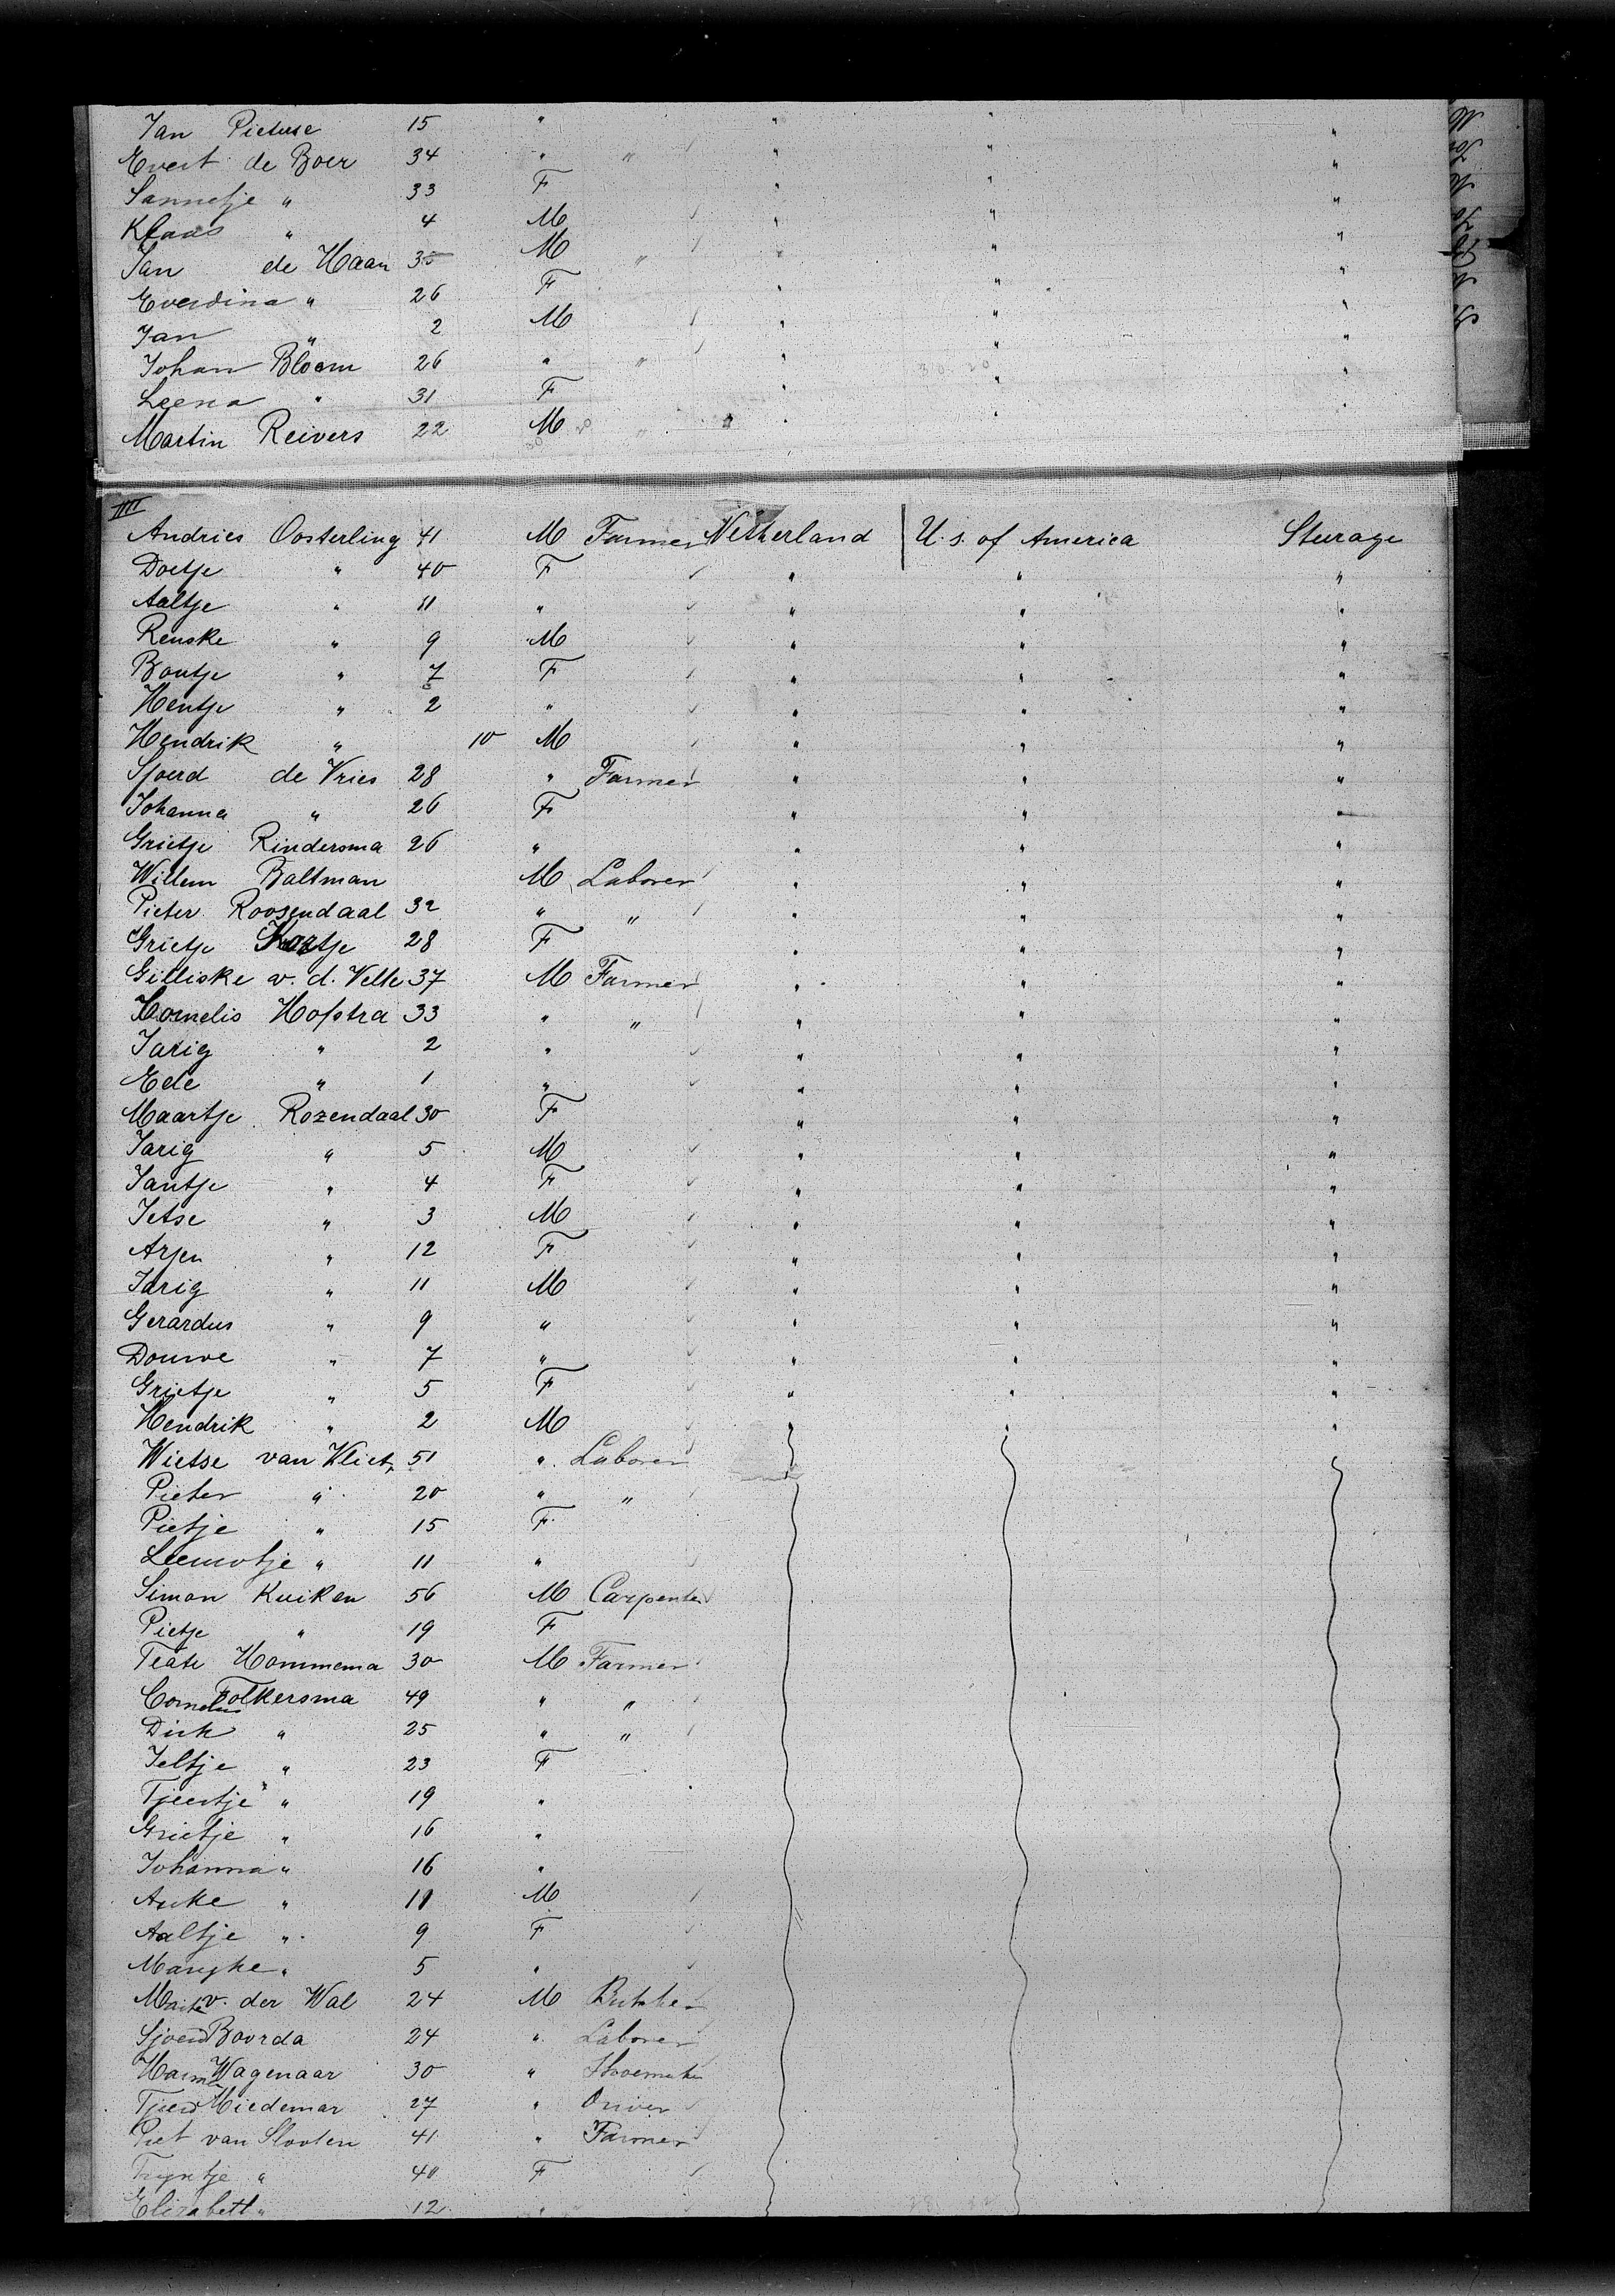 Jan Pieterse 15 " " " "
Evert de Boer 34 " " " " "
Sannetje " 33 F " " "
Klaas " 4 M " " "
Jan de Haan 35 M " " " "
Everdina " 26 F " " "
Jan " 2 M " " "
Johan Bloem 26 " " " " "
Leena " 31 F " " "
Martin Reivers 22 M " "
IIII
Andries Oosterling 41 M Farmer Netherland U. S. of America Steurage
Doetje " 40 F " " "
Aaltje " 11 " " " "
Renske " 9 M " " "
Boutje " 7 F " " "
Hentje " 2 " " " "
Hendrik " 10 M " " "
Sjoerd de Vries 28 " Farmer " " "
Johanna " 26 F " " "
Grietje Rindersma 26 " " " "
Willem Baltman M Laborer " " "
Pieter Roosendaal 32 " " " " "
Grietje Kortje 28 F " " "
Gilliske v. d. Velle 37 M Farmer " " "
Kornelis Hofstra 33 " " " " "
Jarig " 2 " " " "
Ede " 1 " " " "
Maartje Rozendaal 30 F " " "
Jarig " 5 M " " "
Jantje " 4 F " " "
Jetse " 3 M " " "
Arjen " 12 F " " "
Jarig " 11 M " " "
Gerardus " 9 " " " "
Douwe " 7 " " " "
Grietje " 5 F " " "
Hendrik " 2 M " " "
Wietse van Vliet 51 " Laborer
Pieter " 20 " "
Pietje " 15 F
Leemotje " 11 "
Simon Kuiken 56 M Carpenter
Pietje " 19 F
Teate Hommema 30 M Farmer
Cornelius Folkersma 49 " "
Dirk " 25 " "
Jeltje " 23 F
Tjeertje " 19 "
Grietje " 16 "
Johanna " 16 "
Auke " 11 M
Aaltje " 9 F
Maryke " 5 "
v. der Wal 24 M Butcher
Sjoerd Boorda 24 " Laborer
Harmen Wagenaar 30 " Shoemaker
Tjeerd Miedemar 27 " Driver
Piet van Slooten 41 " Farmer
Tryntje " 40 F
Elizabeth " 12 "